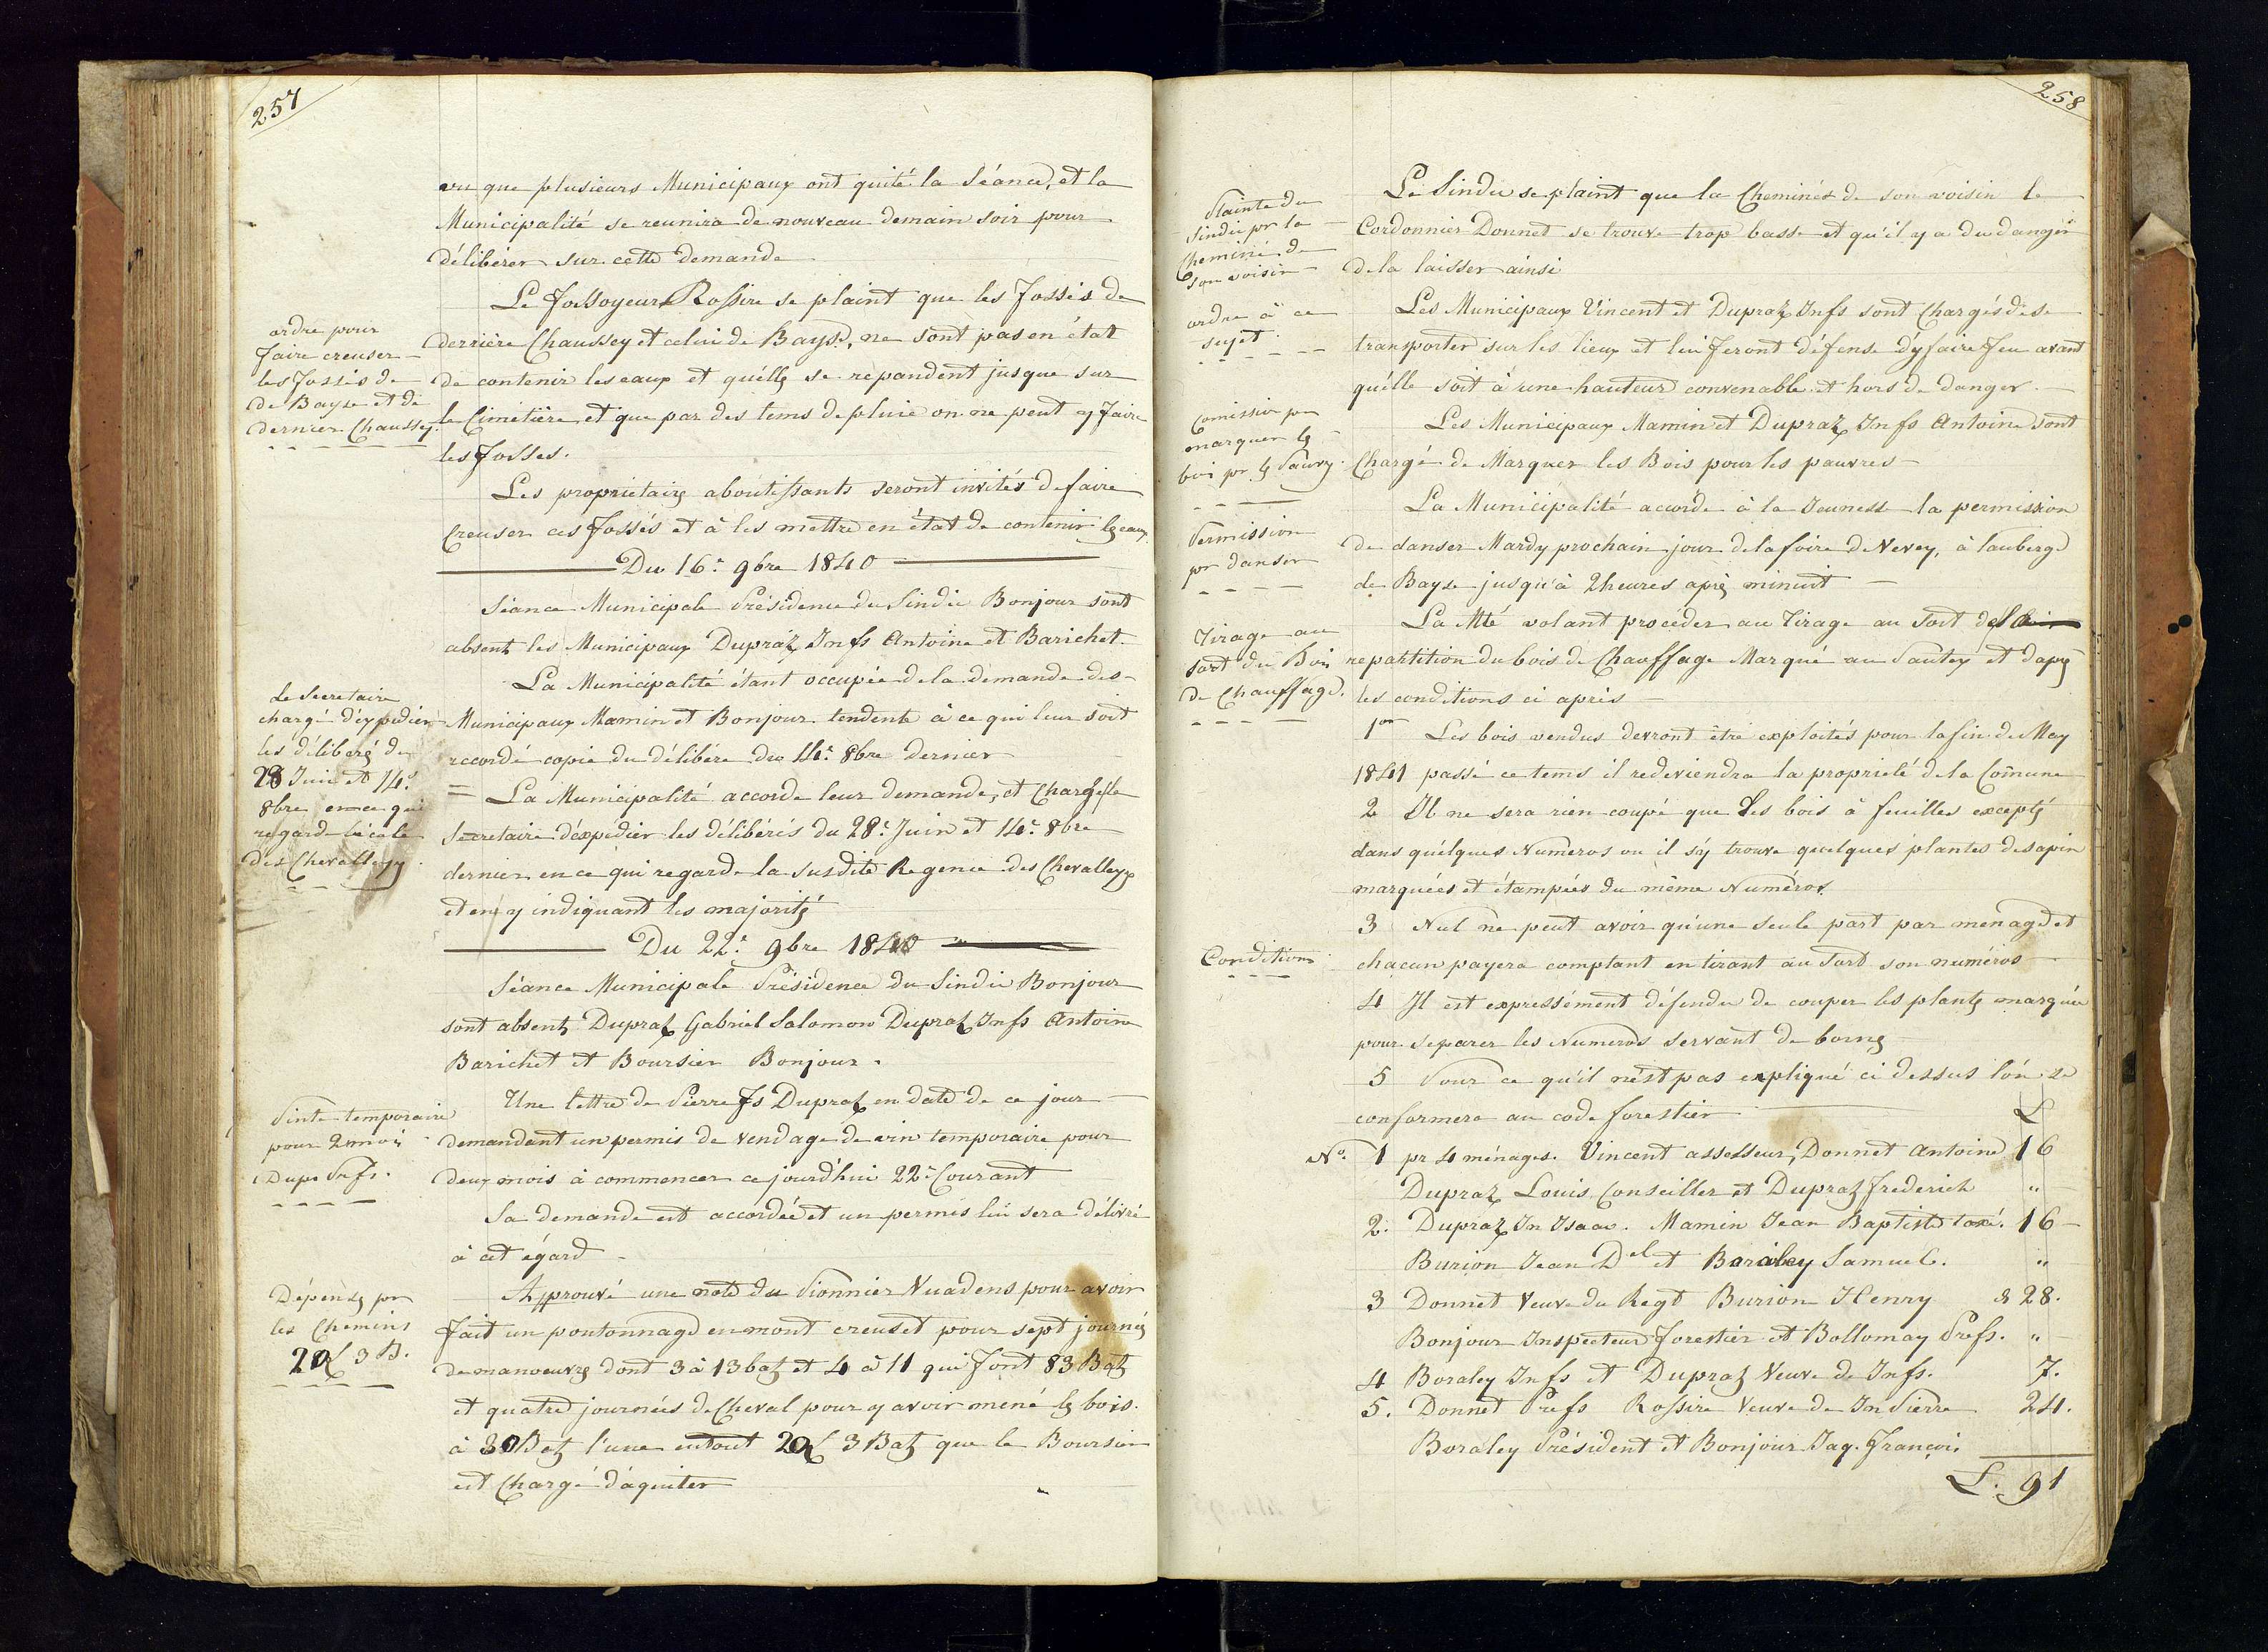 257
vu que plusieurs Municipaux ont quité la Séance, et la
Municipalité se reunira de nouveau demain soir pour
délibérer sur cette demande
Le fossoyeur Rossire se plaint que les fossés de
ordre pour
faire creuser
les fossés de
de Bayse et de
dernier Chaussey.
derrière Chaussey et celui de Bayse, ne sont pas en état
de contenir les eaux et qu'elles se repandent jusque sur
le Cimetière et que par des tems de pluie on ne peut y faire
les fosses.
Les proprietaires aboutissants seront invités de faire
Creuser ces fossés et à les mettre en état de contenir les eaux
Du 16e 9bre 1840
Séance Municipale Présidence du Sindic Bonjour sont
absents les Municipaux Dupraz Jnfs Antoine et Barichet
La Municipalité étant occupée de la demande des
Le Secretaire
chargé d'expédier
les délibérés du
28 Juin et 14e
8bre en ce qui
regarde l'école
des Chevalleyx
Municipaux Mamin et Bonjour tendente à ce qui leur soit
accordé copie du délibéré du 14e 8bre dernier
= La Municipalité accorde leur demande, et Charge le
Secretaire d'expédier les délibérés du 28e Juin et 14e 8bre
dernier en ce qui regarde la susdite Regence des Chevalleyx
et en y indiquant les majorités
Du 22e 9bre 1840
Séance Municipale Présidence du Sindic Bonjour
sont absents Dupraz Gabriel Salomon Dupraz Jnfs Antoine
Barichet et Boursier Bonjour.
Pinte temporaire
pour 2 mois
Dupz Prfs.
Une lettre de Pierre Fs Dupraz en date de ce jour
demandant un permis de vendage de vin temporaire pour
deux mois à commencer ce jourd'hui 22e Courant
Sa demande est accordée et un permis lui sera délivré
à cet égard
Dépenses pr
les Chemins
20L 3 B.
Approuvé une note du Pionnier Vuadens pour avoir
fait un pontonnage en mont creuset pour sept journés
de manoeuvres dont 3 à 13 batz et 4 à 11 qui font 83 Batz
et quatre journées de Cheval pour y avoir mené les bois.
à 30 Batz l'une en tout 20L 3 Batz que le Boursier
est Chargé d'aquiter
258
Plainte du
Sindic pr la
Cheminé de
son voisin
Le Sindic se plaint que la Cheminés de son voisin le
Cordonnier Donnet se trouve trop basse et qu'il y a du danger
de la laisser ainsi
ordre à ce
sujet.
Les Municipaux Vincent et Dupraz Jnfs sont Chargés de se
transporter sur les lieux et lui feront défense d'y faire feu avant
qu'elle soit à une hauteur convenable et hors de danger.
Comission pr
marquer les
bois pr les Pauvres
Les Municipaux Mamin et Dupraz Jnfs Antoine sont
Chargé de Marquer les Bois pour les pauvres
Permission
pr danser
La Municipalité accorde à la Jeunesse la permission
de danser Mardy prochain jour de la foire de Vevey, à l'auberge
de Bayse jusqu'à 2 heures après minuit
Tirage au
sort du Bois
de Chauffage.
La Mté volant procéder au Tirage au Sort de la
repartition du bois de Chauffage Marqué au Pautex et d'après
les conditions ci après
1er Les bois vendus devront être exploités pour la fin de May
1841 passé ce tems il redeviendra la proprieté de la Comune
2 Il ne sera rien coupé que les bois à feuilles exceptés
dans quelques Numéros ou il s'y trouve quelques plantes de sapin
marquées et étampées du même Numéros
Conditions
3 Nul ne peut avoir qu'une seule part par ménage et
chacun payera comptant en tirant au Sort son numéros
4 Il est expressément défendu de couper les plantes marquées
pour separer les Numeros servant de bornes
5 Pour ce qu'il n'est pas expliqué ci dessus l'on se
conformera au code forestier
L
No. 1 pr 4 ménages. Vincent assesseur, Donnet Antoine 16
Dupraz Louis Conseiller et Dupraz frederich "
2. Dupraz Jn Isaac. Mamin Jean Baptiste taxé. 16
Burion Jean Del et Boraley Samuel. "
3 Donnet Veuve du Regt Burion Henry & 28.
Bonjour Inspecteur forestier et Bollomay Prefs. "
4 Boraley Jnfs et Dupraz Veuve de Jnfs. 7.
5. Donnet Prefs Rossire Veuve de Jn Pierre 24.
Boraley Président et Bonjour Jaq. François
L. 91